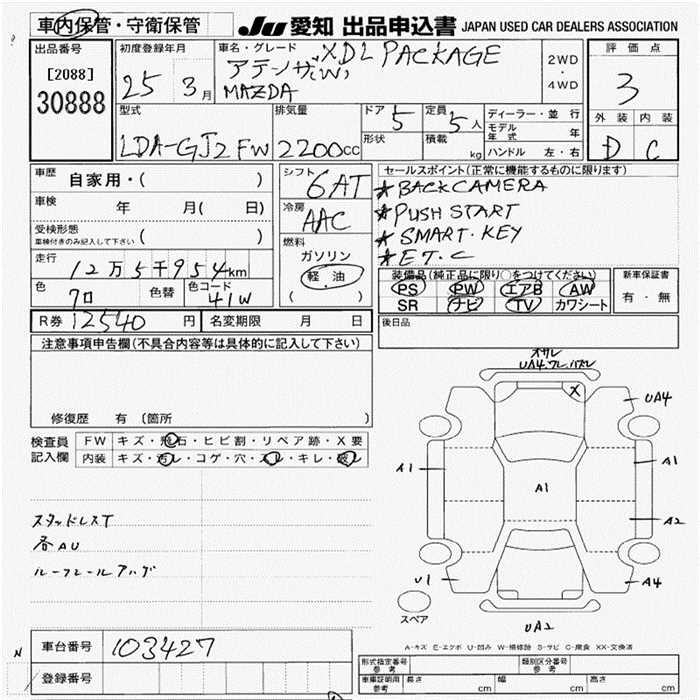 車内保管・守衛保管
JU 愛知 出品申込書 JAPAN USED CAR DEALERS ASSOCIATION
出品番号
[2088]
30888
初度登録年月
25 3月
車名・グレード
XDL PACKAGE
MAZDA
2WD
・
4WD
評価点
3
外装 内装
D C
型式
LDA-GJ2FW
排気量
2200cc
ドア 5
形状
定員 5人
積載 kg
ディーラー・並行
モデル年式 年
ハンドル 左・右
車歴 自家用・( )
車検 年 月( 日)
受検形態
車検付きのみ記入して下さい ( )
走行 12万5千954km
色 クロ 色替 色コード 41W
R券 12540円 名変期限 月 日
シフト 6AT
冷房 AAC
燃料
ガソリン
軽油
( )
セールスポイント(正常に機能するものに限ります)
★BACK CAMERA
★PUSH START
★SMART・KEY
★ET.C
装備品(純正品に限り○をつけてください)
PS PW エアB AW
SR ナビ TV カワシート
新車保証書
有・無
後日品
注意事項申告欄(不具合内容等は具体的に記入して下さい)
修復歴 有 (箇所 )
検査員記入欄
FW キズ・飛石・ヒビ割・リペア跡・X要
内装 キズ・汚レ・コゲ・穴・スレ・キレ・破レ
スタッドレスT
各AU
車台番号 103427
登録番号
N
UA4・ワレ・ハズレ
X
UA4
A1
A1
A1
A2
U1
A4
UA2
スペア
A-キズ E-エクボ U-凹み W-補修跡 S-サビ C-腐食 XX-交換済
形式指定番号 参考
類別区分番号 参考
車庫証明用 参考 長さ cm 幅 cm 高さ cm